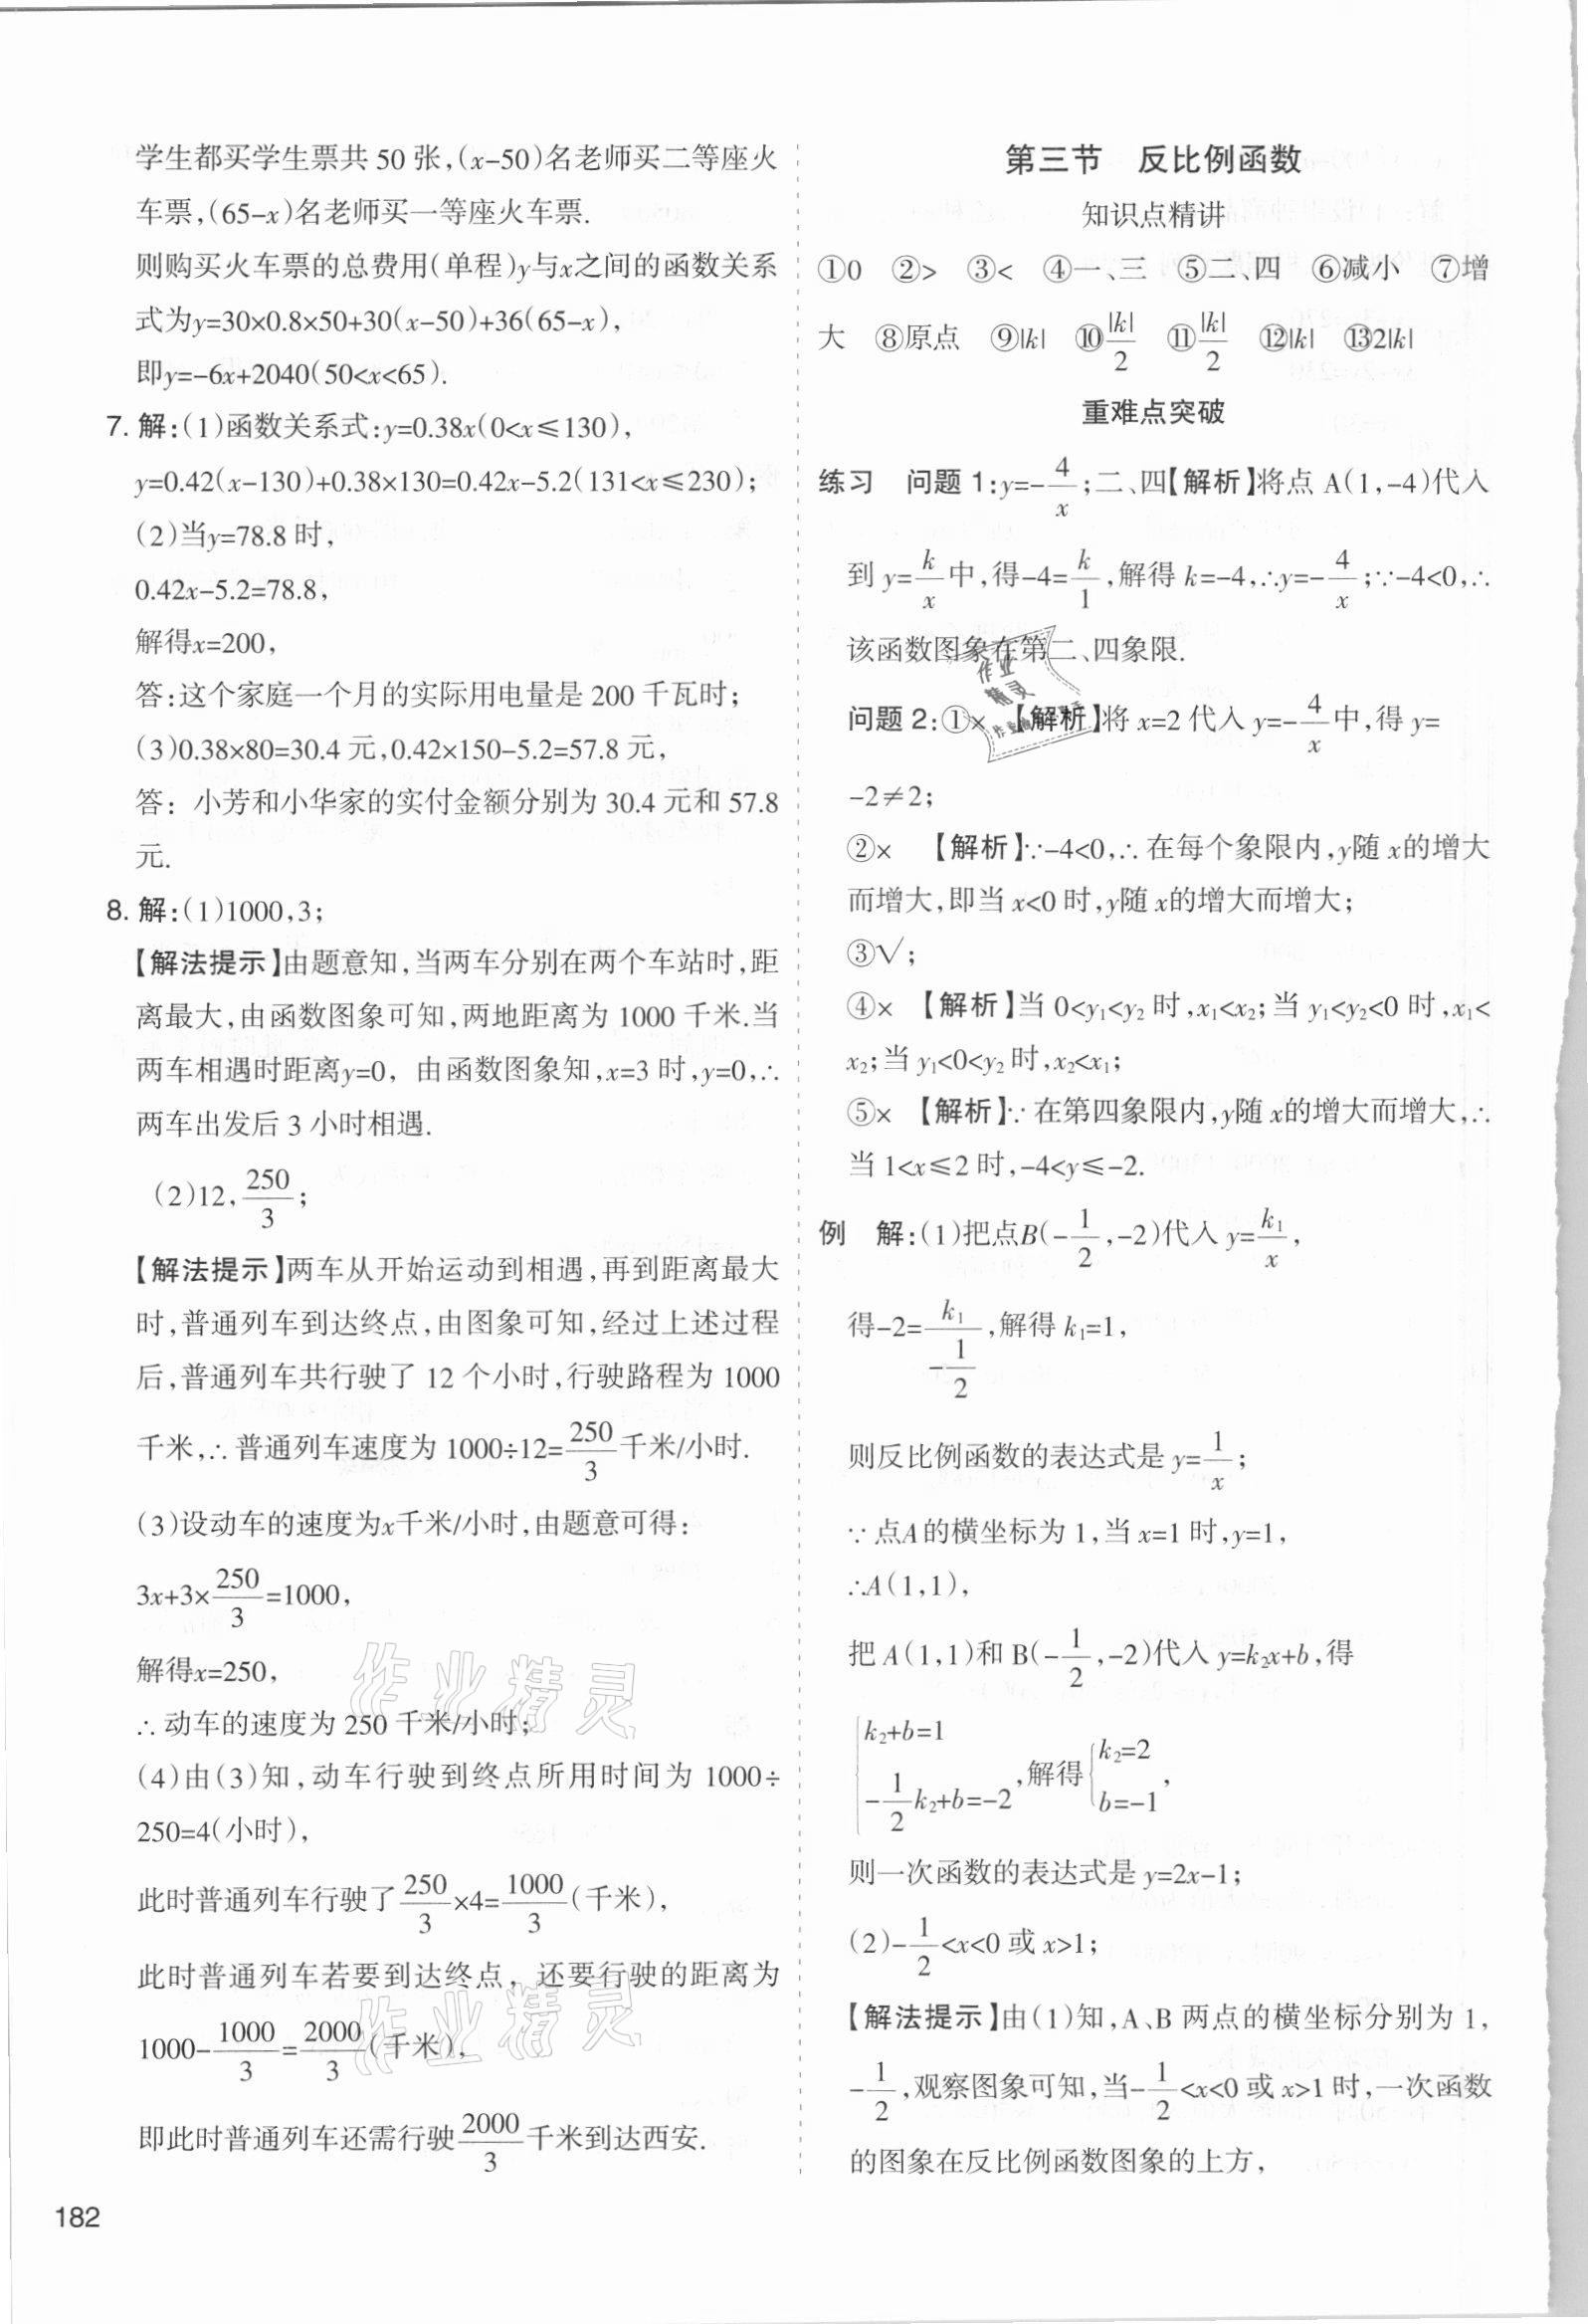 学生都买学生票共 50 张,(x-50)名老师买二等座火
车票,(65-x)名老师买一等座火车票.
则购买火车票的总费用(单程)y与x之间的函数关系
式为y=30×0.8×50+30(x-50)+36(65-x),
即y=-6x+2040(50<x<65).
7. 解:(1)函数关系式:y=0.38x(0<x⩽130),
y=0.42(x-130)+0.38×130=0.42x-5.2(131<x⩽230);
(2)当y=78.8 时,
0.42x-5.2=78.8,
解得x=200,
答:这个家庭一个月的实际用电量是 200 千瓦时;
(3)0.38×80=30.4 元,0.42×150-5.2=57.8 元,
答: 小芳和小华家的实付金额分别为 30.4 元和 57.8
元.
8. 解:(1)1000,3;
【解法提示】由题意知,当两车分别在两个车站时,距
离最大,由函数图象可知,两地距离为 1000 千米.当
两车相遇时距离y=0, 由函数图象知,x=3 时,y=0,∴
两车出发后 3 小时相遇.
(2)12, 250/3;
【解法提示】两车从开始运动到相遇,再到距离最大
时,普通列车到达终点,由图象可知,经过上述过程
后,普通列车共行驶了 12 个小时,行驶路程为 1000
千米,∴ 普通列车速度为 1000÷12=250/3千米/小时.
(3)设动车的速度为x千米/小时,由题意可得:
3x+3×250/3=1000,
解得x=250,
∴ 动车的速度为 250 千米/小时;
(4)由(3)知,动车行驶到终点所用时间为 1000÷
250=4(小时),
此时普通列车行驶了250/3×4=1000/3(千米),
此时普通列车若要到达终点, 还要行驶的距离为
1000-1000/3=2000/3(千米),
即此时普通列车还需行驶2000/3千米到达西安.
182
第三节 反比例函数
知识点精讲
①0 ②> ③< ④一、三 ⑤二、四 ⑥减小 ⑦增
大 ⑧原点 ⑨|k| ⑩|k|/2 ⑪|k|/2 ⑫|k| ⑬2|k|
重难点突破
练习 问题 1:y=-4/x;二、四【解析】将点 A(1,-4)代入
到 y=k/x中,得-4=k/1,解得 k=-4,∴y=-4/x;∵-4<0,∴
该函数图象在第二、四象限.
问题 2:①× 【解析】将 x=2 代入 y=-4/x中,得 y=
-2≠2;
②× 【解析】∵-4<0,∴ 在每个象限内,y随 x的增大
而增大,即当 x<0 时,y随 x的增大而增大;
③√;
④× 【解析】当 0<y₁<y₂ 时,x₁<x₂;当 y₁<y₂<0 时,x₁<
x₂;当 y₁<0<y₂ 时,x₂<x₁;
⑤× 【解析】∵ 在第四象限内,y随 x的增大而增大,∴
当 1<x⩽2 时,-4<y⩽-2.
例 解:(1)把点B(-1/2,-2)代入 y=k₁/x,
得-2=k₁/(-1/2),解得 k₁=1,
则反比例函数的表达式是 y=1/x;
∵ 点A的横坐标为 1,当 x=1 时,y=1,
∴A(1,1),
把 A(1,1)和 B(-1/2,-2)代入 y=k₂x+b,得
{k₂+b=1
-1/2k₂+b=-2,解得{k₂=2
b=-1,
则一次函数的表达式是 y=2x-1;
(2)-1/2<x<0 或 x>1;
【解法提示】由(1)知,A、B 两点的横坐标分别为 1,
-1/2,观察图象可知,当-1/2<x<0 或 x>1 时,一次函数
的图象在反比例函数图象的上方,
作业精灵
作业精灵
作业精灵